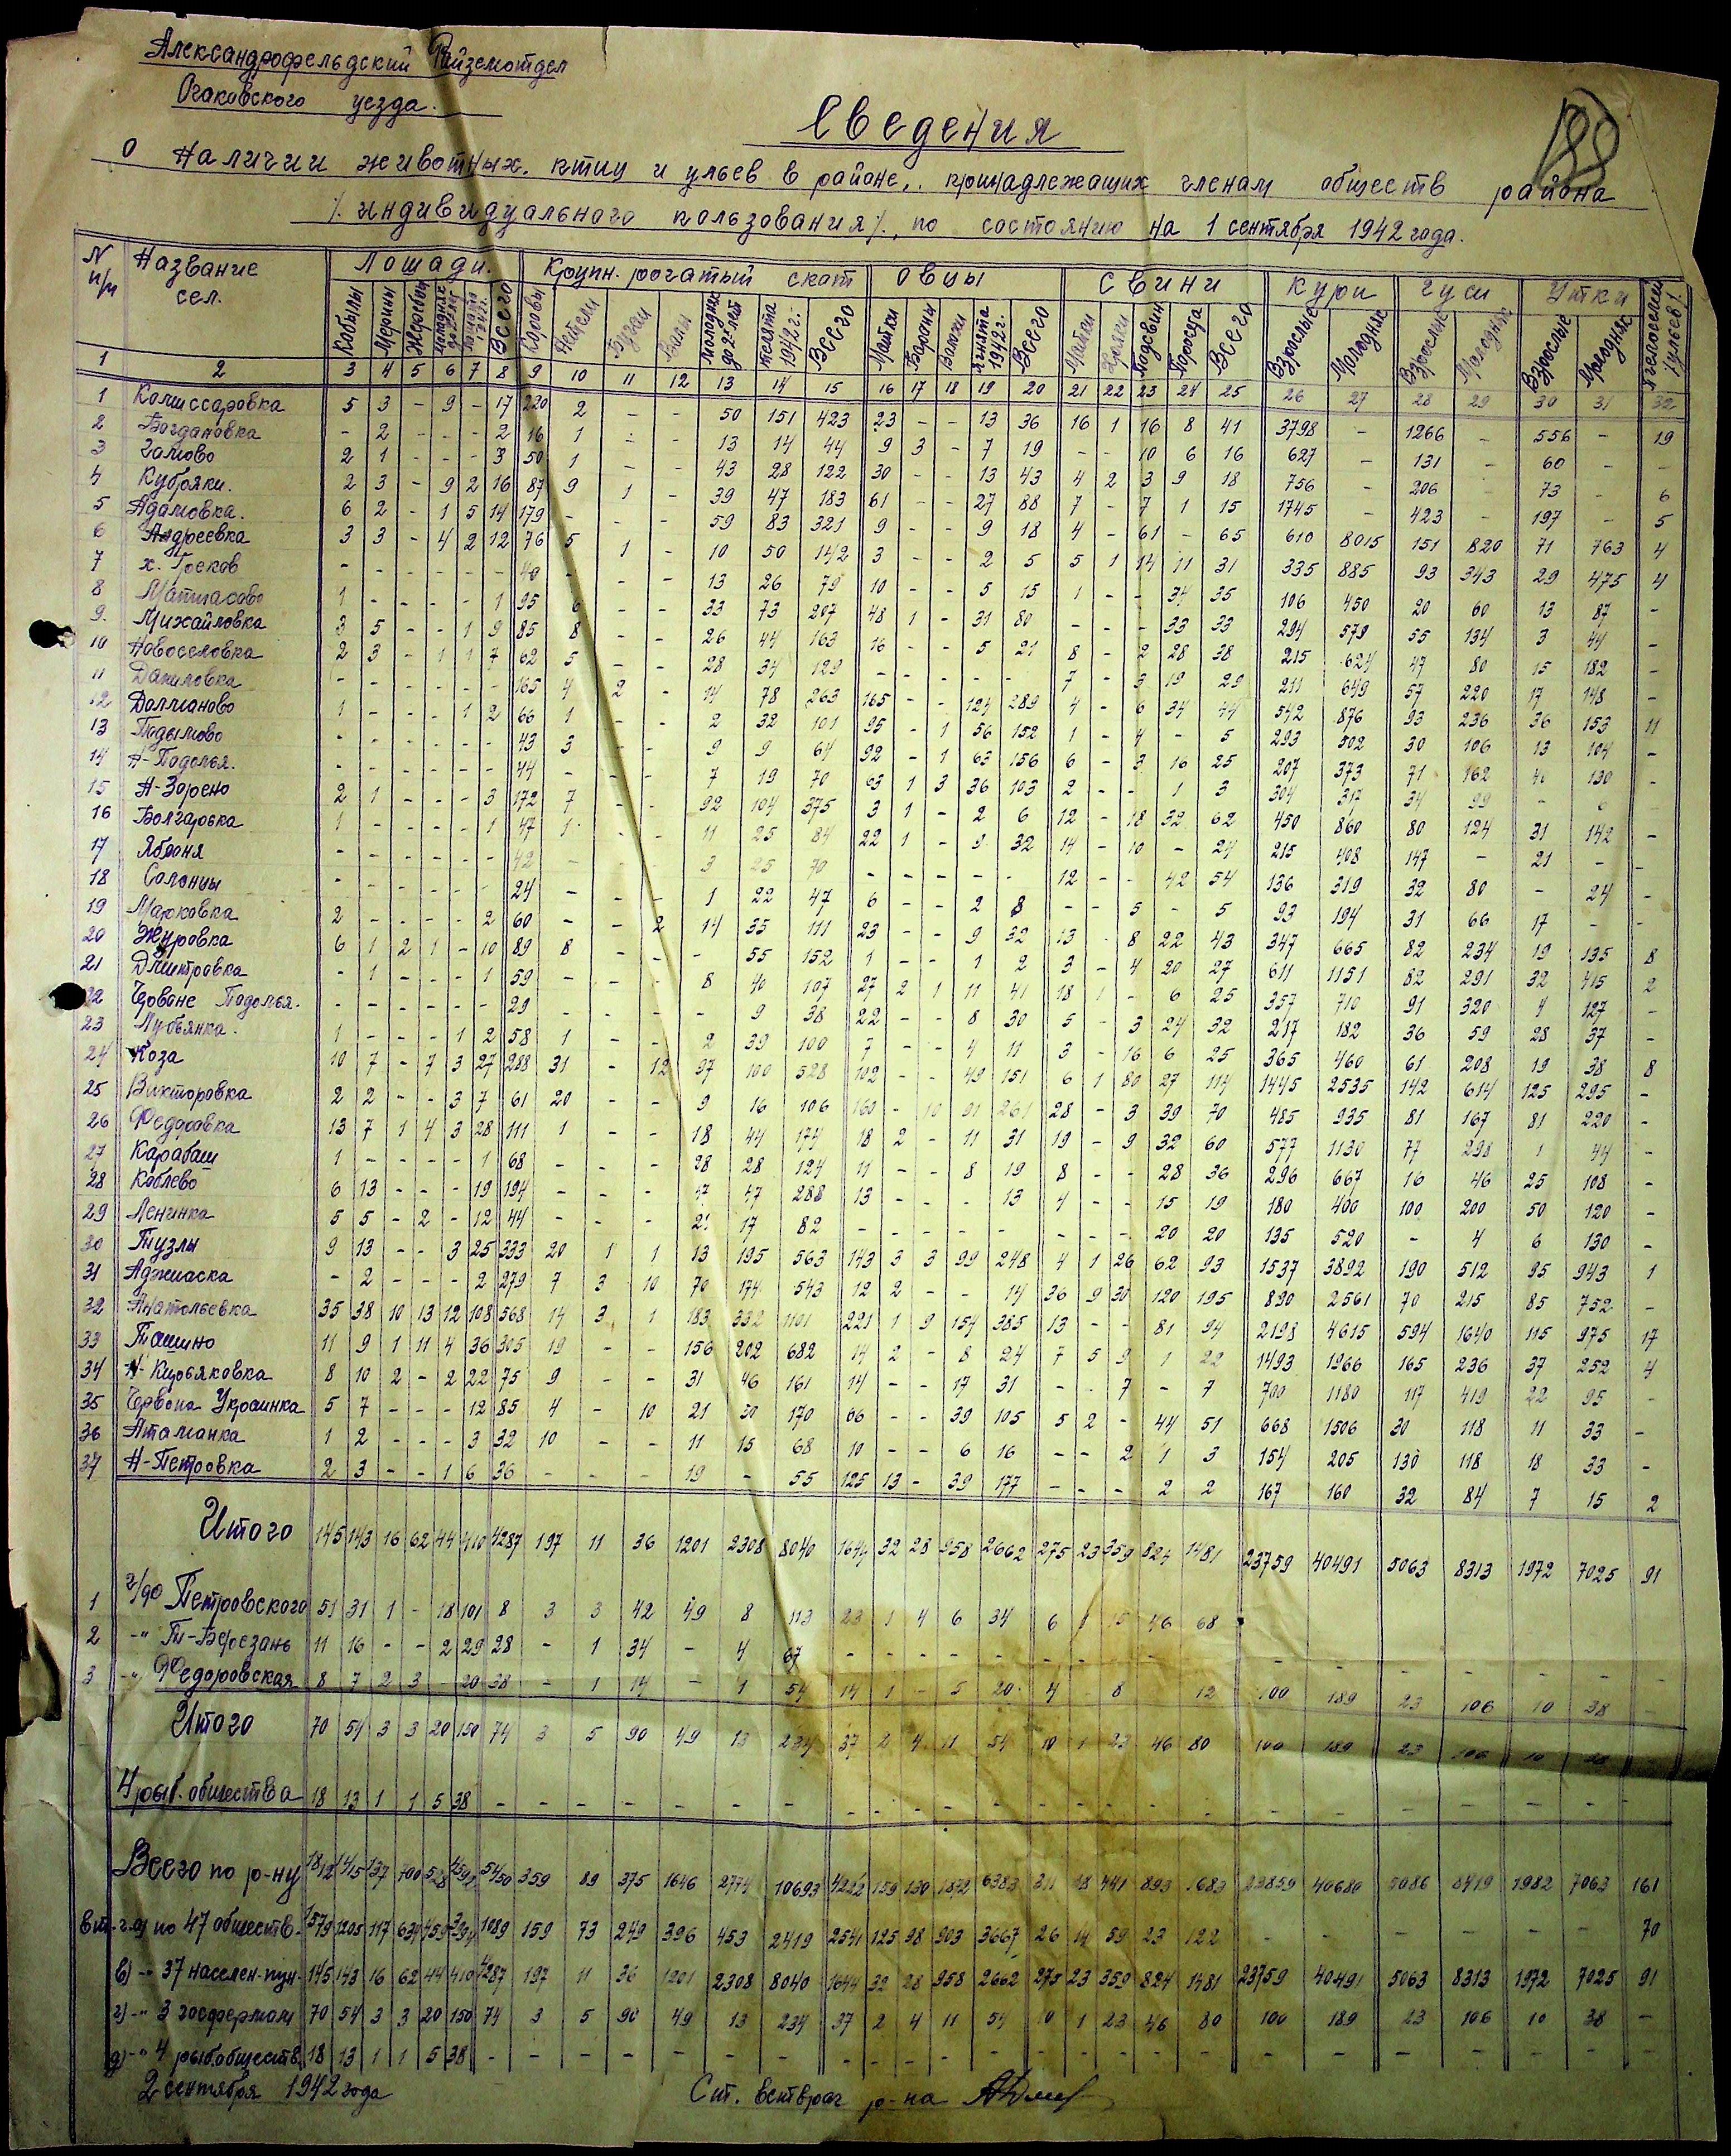 Александрофельдский Райземотдел
Очаковского уезда.
Сведения
о наличии животных, птиц и ульев в районе, принадлежащих членам обществ района
/индивидуального пользования/, по состоянию на 1 сентября 1942 года.
N п/п Название сел. Лошади. Крупн. рогатый скот Овцы Свини Куры Гуси Утки Пчелосемей /ульев/
Кобылы Мерины Жеребцы Всего Коровы Нетели Бугаи Волы Молодняк до 2х лет Телята 1942 г. Всего Матки Бараны Валахи Ягнята 1942 г. Всего Матки Подсвин Поросята Всего Взрослые Молодняк Взрослые Молодняк Взрослые Молодняк
1 2 3 4 5 6 7 8 9 10 11 12 13 14 15 16 17 18 19 20 21 22 23 24 25 26 27 28 29 30 31 32
1 Комиссаровка 5 3 - 9 - 17 220 2 - - 50 151 423 23 - - 13 36 16 1 16 8 41 3798 - 1266 - 556 - 19
2 Богдановка - 2 - - - 2 16 1 - - 13 14 44 9 3 - 7 19 - - 10 6 16 627 - 131 - 60 - -
3 2 1 - - - 3 50 1 - - 43 28 122 30 - - 13 43 4 2 3 9 18 756 - 206 - 73 - 6
4 Кубряки. 2 3 - 9 2 16 87 9 1 - 39 47 183 61 - - 27 88 7 - 7 1 15 1745 - 423 - 197 - 5
5 Адамовка. 6 2 - 1 5 14 179 - - - 59 83 321 9 - - 9 18 4 - 61 - 65 610 8015 151 820 71 763 4
6 Андреевка 3 3 - 4 2 12 76 5 1 - 10 50 142 3 - - 2 5 5 1 14 11 31 335 885 93 343 29 475 4
7 х. Греков - - - - - - 40 - - - 13 26 79 10 - - 5 15 1 - - 34 35 106 450 20 60 13 87 -
8 Матиясово 1 - - - - 1 95 6 - - 33 73 207 48 1 - 31 80 - - - 33 33 294 579 55 134 3 44 -
9. Михайловка 3 5 - - 1 9 85 8 - - 26 44 163 16 - - 5 21 8 - 2 28 38 215 624 47 80 15 182 -
10 Новоселовка 2 3 - 1 1 7 62 5 - - 28 34 129 - - - - - 7 - 3 19 29 211 649 57 220 17 148 -
11 Даниловка - - - - - - 165 4 2 - 14 78 263 165 - - 124 289 4 - 6 34 44 542 876 93 236 36 153 11
12 Долманово 1 - - - 1 2 66 1 - - 2 32 101 95 - 1 56 152 1 - 4 - 5 293 502 30 106 13 104 -
13 Подымово - - - - - - 43 3 - - 9 9 64 92 - 1 63 156 6 - 3 16 25 207 373 71 162 130 -
14 Н-Подолья. - - - - - - 44 - - - 7 19 70 63 1 3 36 103 2 - - 1 3 304 317 34 99 - 6 -
15 Н-Зорено 2 1 - - - 3 172 7 - - 92 104 375 3 1 - 2 6 12 - 18 32 62 450 860 80 124 31 142 -
16 Болгарька 1 - - - - 1 47 1 - - 11 25 84 22 1 - 9 32 14 - 10 - 24 215 408 147 - 21 - -
17 Яблоня - - - - - - 42 - - - 3 25 70 - - - - - 12 - - 42 54 136 319 32 80 - 24 -
18 Солонцы - - - - - - 24 - - - 1 22 47 6 - - 2 8 - - 5 - 5 93 194 31 66 17 - -
19 Марковка 2 - - - - 2 60 - - 2 14 35 111 23 - - 9 32 13 - 8 22 43 347 665 82 234 19 135 8
20 Журовка 6 1 2 1 - 10 89 8 - - - 55 152 1 - - 1 2 3 - 4 20 27 611 1151 82 291 32 415 2
21 Дмитровка - 1 - - - 1 59 - - - 8 40 107 27 2 1 11 41 18 1 - 6 25 357 710 91 320 4 127 -
22 Червоне Подолья. - - - - - - 29 - - - - 9 38 22 - - 8 30 5 - 3 24 32 217 182 36 59 28 37 -
23 Лубьянка. 1 - - - 1 2 58 1 - - 2 39 100 7 - - 4 11 3 - 16 6 25 365 460 61 208 19 38 8
24 Коза 10 7 - 7 3 27 288 31 - 12 97 100 528 102 - - 49 151 6 1 80 27 114 1445 2535 142 614 125 295 -
25 Викторовка 2 2 - - 3 7 61 20 - - 9 16 106 160 - 10 91 261 28 - 3 39 70 485 935 81 167 81 220 -
26 Федоровка 13 7 1 4 3 28 111 1 - - 18 44 174 18 2 - 11 31 19 - 9 32 60 577 1130 77 298 1 44 -
27 Карабаш 1 - - - - 1 68 - - - 28 28 124 11 - - 8 19 8 - - 28 36 296 667 16 46 25 108 -
28 Коблево 6 13 - - - 19 194 - - - 47 47 288 13 - - - 13 4 - - 15 19 180 400 100 200 50 120 -
29 Ленинка 5 5 - 2 - 12 44 - - - 21 17 82 - - - - - - - - 20 20 135 520 - 4 6 130 -
30 Тузлы 9 13 - - 3 25 333 20 1 1 13 195 563 143 3 3 99 248 4 1 26 62 93 1537 3892 190 512 95 943 1
31 Аджиаска - 2 - - - 2 279 7 3 10 70 174 543 12 2 - - 14 36 9 30 120 195 890 2561 70 215 85 752 -
32 Анатольевка 35 38 10 13 12 108 568 14 3 1 183 332 1101 221 1 9 154 385 13 - - 81 94 2198 4615 594 1640 115 975 17
33 Ташино 11 9 1 11 4 36 305 19 - - 156 202 682 14 2 - 8 24 7 5 9 1 22 1493 1966 165 236 37 252 4
34 Н-Кирьяковка 8 10 2 - 2 22 75 9 - - 31 46 161 14 - - 17 31 - - 7 - 7 700 1180 117 419 22 95 -
35 Червона Украинка 5 7 - - - 12 85 4 - 10 21 30 170 66 - - 39 105 5 2 - 44 51 668 1506 30 118 11 33 -
36 Атаманка 1 2 - - - 3 32 10 - - 11 15 68 10 - - 6 16 - - 2 1 3 154 205 130 118 18 33 -
37 Н-Петровка 2 3 - - 1 6 36 - - - 19 - 55 125 13 - 39 177 - - - 2 2 167 160 32 84 7 15 2
Итого 145 143 16 62 44 410 4287 197 11 36 1201 2308 8040 1644 32 28 958 2662 275 23 359 824 1481 23759 40491 5063 8313 1972 7025 91
1 г/хо Петровского 51 31 1 - 18 101 8 3 3 42 49 8 113 23 1 4 6 34 6 1 15 46 68
2 -"- Т-Березань 11 16 - - 2 29 28 - 1 34 - 4 67 - - - - - - - - - - - - - - - -
3 -"- Федоровская 8 7 2 3 - 20 38 - 1 14 - 1 54 14 1 - 5 20 4 8 12 100 189 23 106 10 38 -
Итого 70 54 3 3 20 150 74 3 5 90 49 13 234 37 2 4 11 54 10 1 23 46 80 100 189 23 106 10 38 -
4 рыб. общества 18 13 1 1 5 38 - - - - - - - - - - - - - - - - - - - - - - - -
Всего по р-ну 1812 1415 137 700 528 4592 5450 359 89 375 1646 2774 10693 4222 159 130 1872 6383 311 38 441 893 1683 23859 40680 5086 8419 1982 7063 161
в т.ч. а) по 47 обществ. 1579 1205 117 634 459 1089 159 73 249 396 453 2419 2541 125 98 903 3667 26 14 59 23 122 - - - - - - 70
в) -"- 37 населен. пун. 145 143 16 62 44 410 4287 197 11 36 1201 2308 8040 1644 32 28 958 2662 275 23 359 824 1481 23759 40491 5063 8313 1972 7025 91
г) -"- 3 госфермам 70 54 3 3 20 150 74 3 5 90 49 13 234 37 2 4 11 54 10 1 23 46 80 100 189 23 106 10 38 -
д) -"- 4 рыб.обществ. 18 13 1 1 5 38 - - - - - - - - - - - - - - - - - - - - - - - -
2 сентября 1942 года Ст. ветврач р-на